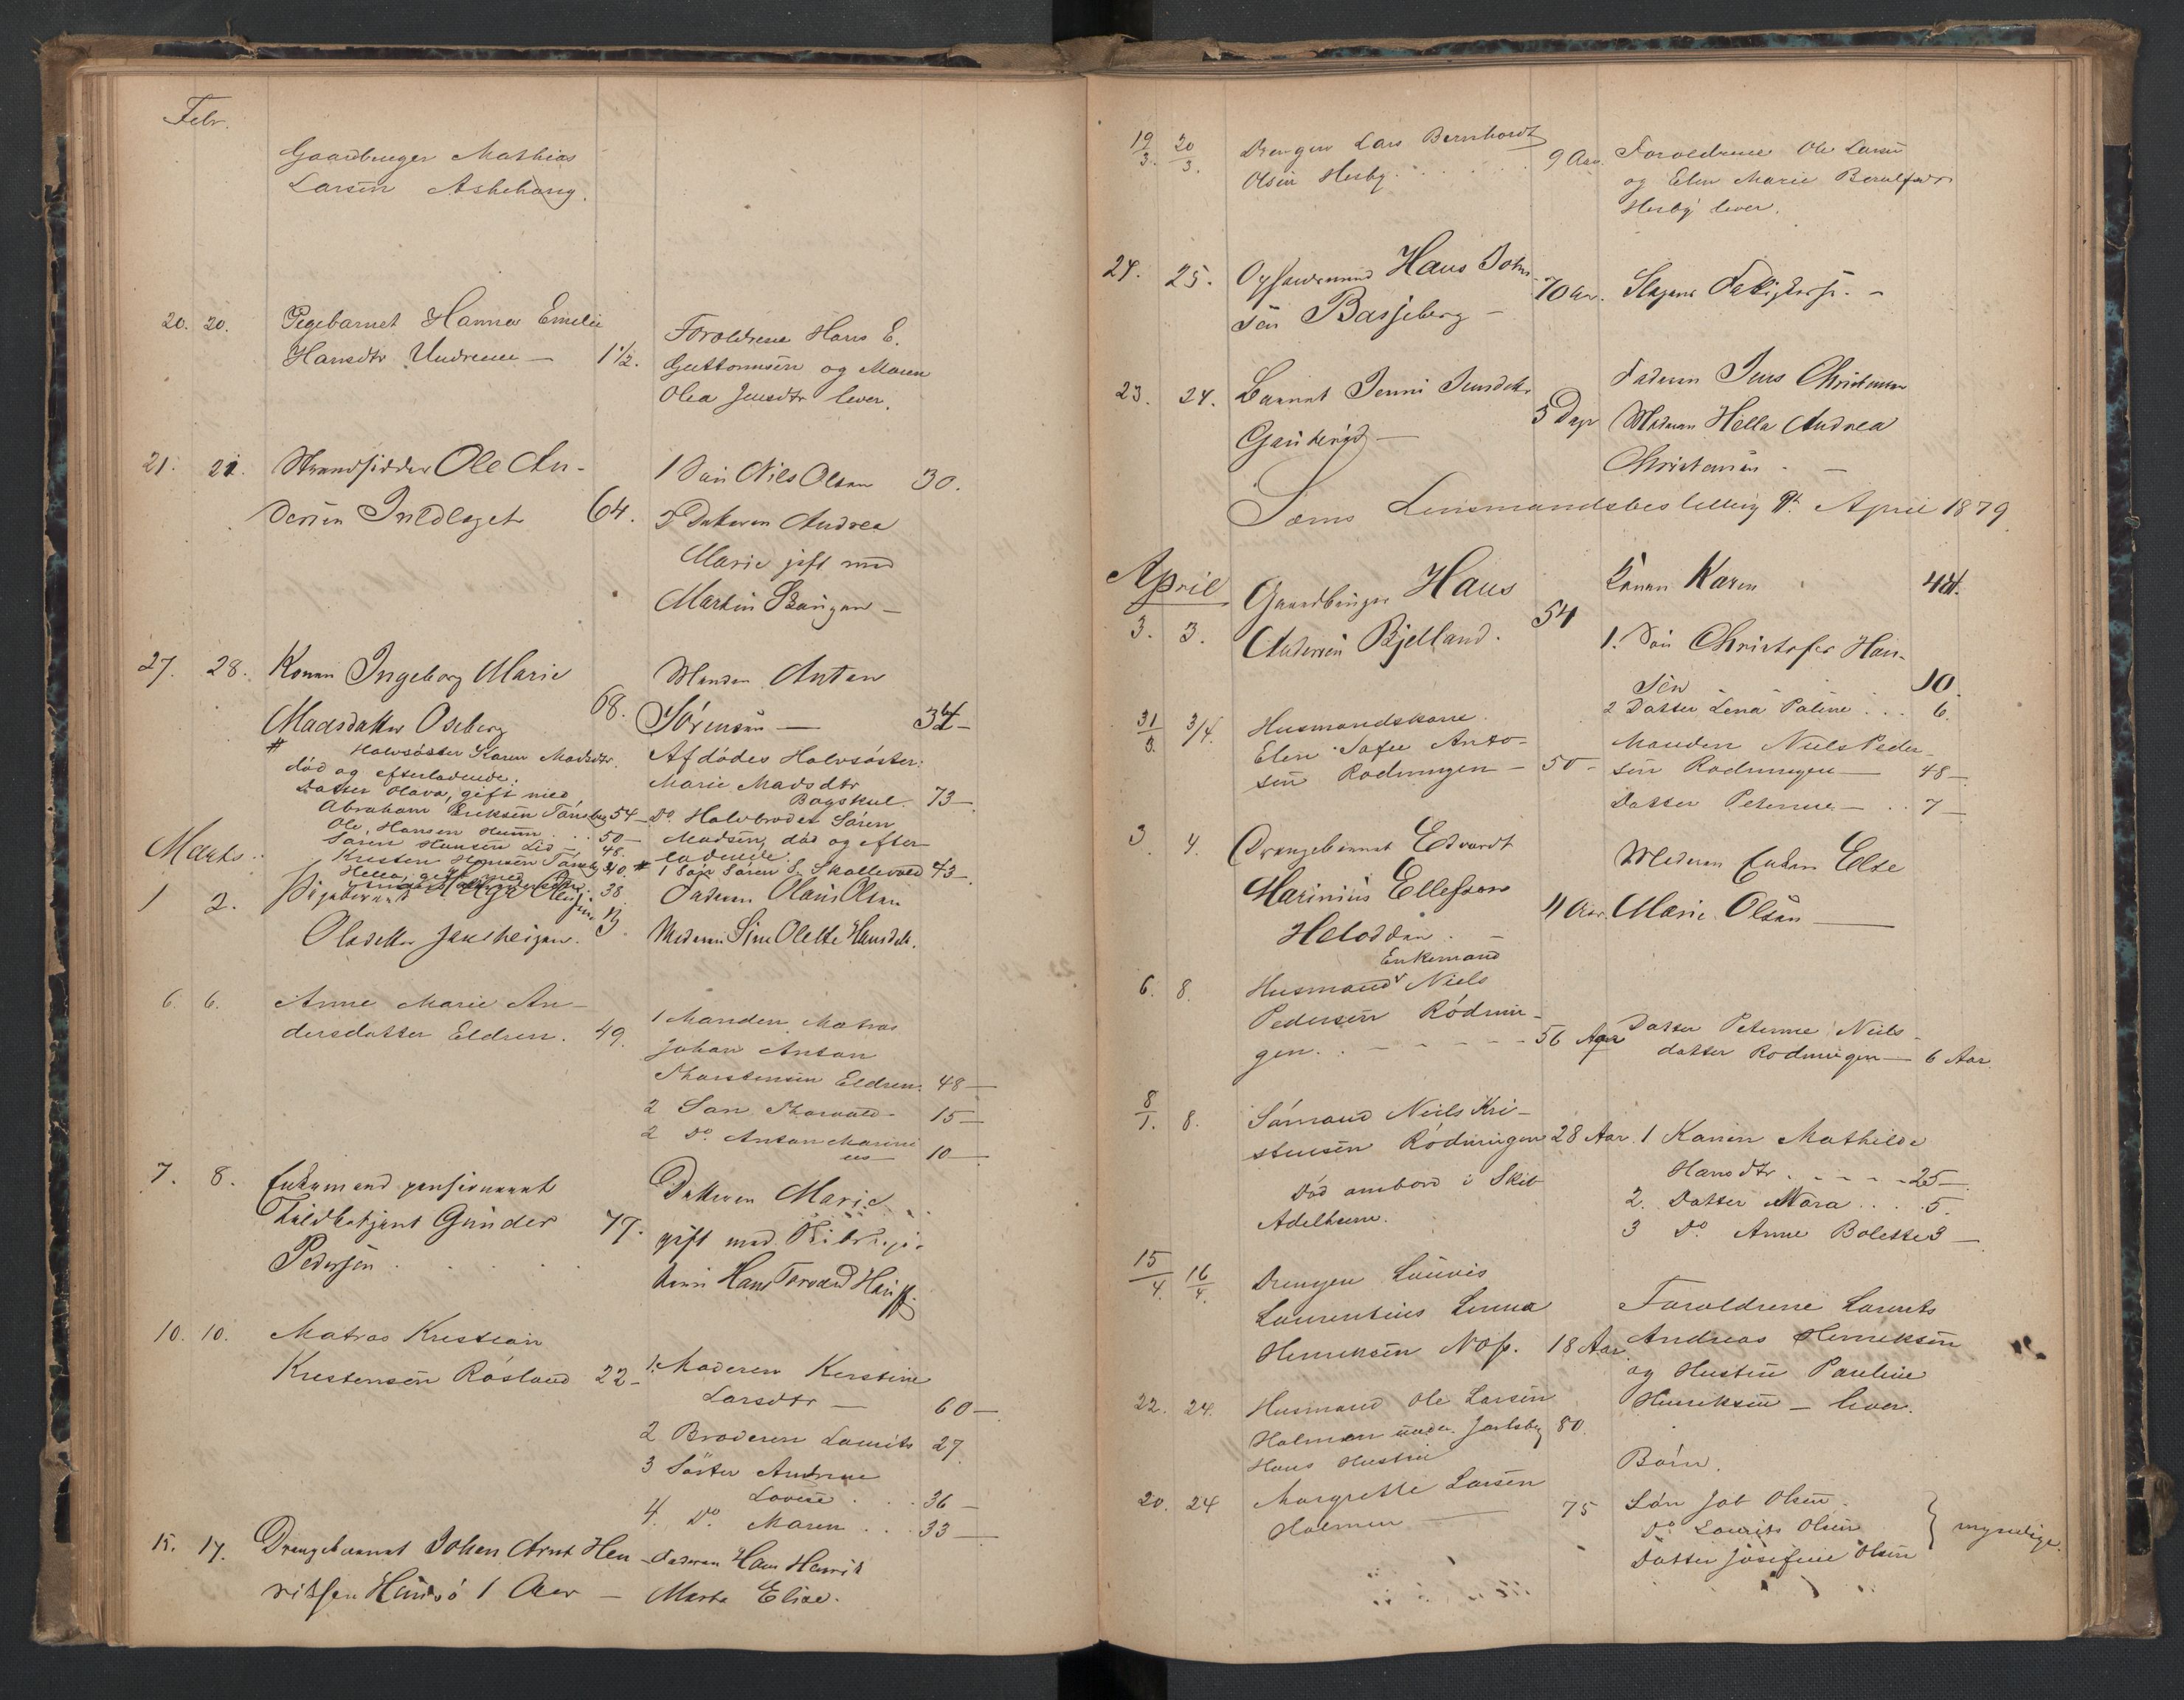 Febr.
Gaardbruger Mathias
Larsen Askehaug.
20. 20. Pigebarnet Hanna Emelie
Hansdtr Undrum — 1½.
Foroldrene Hans E.
Guttormsen og Maren
Olea Jensdtr lever.
21. 21. Strandsidder Ole An-
dersen Ildlaget 64.
1 Sön Nils Olsen 30.
2 Datteren Andrea
Marie gift med
Martin
27. 28. Konen Ingeborg Marie
Madsdatter Oseberg 68.
Manden Anton
Sörensen — 34 —
# Halvsöster Karen Madsdtr.
död og efterladende:
Datter Olava, gift med
Abraham Eriksen Tönsberg 54 —
Ole Hansen . . 50 —
Sören Hansen Lid — 48.
Kristen Hansen Tönsberg 40.
Hella, gift med
38
Afdödes Halvsöster:
Marie Madsdtr
Bogskul. 73 —
Do. Halvbroder Sören
Madsen, död og efter-
ladende.
# 1 Sön Sören S. Skallevold 43 —
Marts.
1 2. Pigebarnet Helga
Olsdatter Jarlseigen. 3.
Faderen Olaus Olsen
Moderen Sine Olette Hansdtr.
6. 6. Anne Marie An-
dersdatter Eldren. 49.
1 Manden Matros
Johan Anton
Thorstensen Eldren. 48 —
2 Sön Thorvald — 15 —
2 Do. Anton Marini
us — 10 —
7. 8. Enkemand pensioneret
Gunder 77.
Pedersen . . . .
Datteren Marie
gift med
Hans Torvald
10. 10. Matros Kristian
Kristensen Rösland 22 —
1. Moderen Kerstine
Larsdtr — 60 —
2 Broderen Laurits 27
3 Söster Andrine
Lovise . . . 36 —
4. Do. Maren . . . 33 —
15. 17. Drengebarnet Johan Arnt Hen-
riksen Husö 1 Aar —
Faderen Hans Henrik
Marta Elise.
19/3. 20/3. Drengen Lars Bernhardt
Olsen Hesby . . . . . 9 Aar.
Foroldrene Ole Larsen
og Elen Marie Berulfsdtr
Hesby lever.
24. 25. Opsiddermand Hans John-
sen Basjeberg — 70 Aar.
Slagens Fattigkasse. —
23. 24. Barnet Jenni Jensdtr
5 Dage
Faderen Jens Christensen
Moderen Hella Andrea
Christensen. —
Sems Lensmandsbestilling April 1879
April
3. 3. Gaardbruger Hans
Andersen Bjelland. 54
Konen Karen 44.
1. Sön Christofer Han-
sen 10
2 Datter Lena Paline . . . 6.
31/3. 3/4. Husmandskone
Elen Sofie Anto-
sen Rodningen — 50 —
Manden Niels Peder-
sen Rodningen — 48 —
Datter Peterine — . . 7 —
3. 4. Drengebarnet Edvardt
Marinius Ellefsen
Heloddan . — 11 Aar.
Moderen Enken Else
Marie Olsen —
Enkemand
6. 8. Husmand Niels
Pedersen Rödnin-
gen. . — — — — 56 Aar
Datter Peterine Niels-
datter Rodningen — 6 Aar.
8/1. 8. Sömand Niels Kri-
stensen Rödningen 28 Aar.
Död ombord i Skib
Adelheim.
1 Konen Mathilde
Hansdtr . . . . . 25 —
2. Datter Nora . . . . 5.
3 Do Anne Bolette 3 —
15/4. 16/4. Drengen Louvis
Laurentius Linna
Henriksen Nöss. 18 Aar
Foroldrene Laurits
Andreas Henriksen
og Hustru Pauline
Henriksen — lever.
22. 24. Husmand Ole Larsen
Holmen under Jarlsberg 80.
Hans Hustru
20. 24 Margrethe Larsen
Holmen — 75
Börn.
Sön Job Olsen.
Do. Laurits Olsen
Datter Josefine Olsen
myndige.